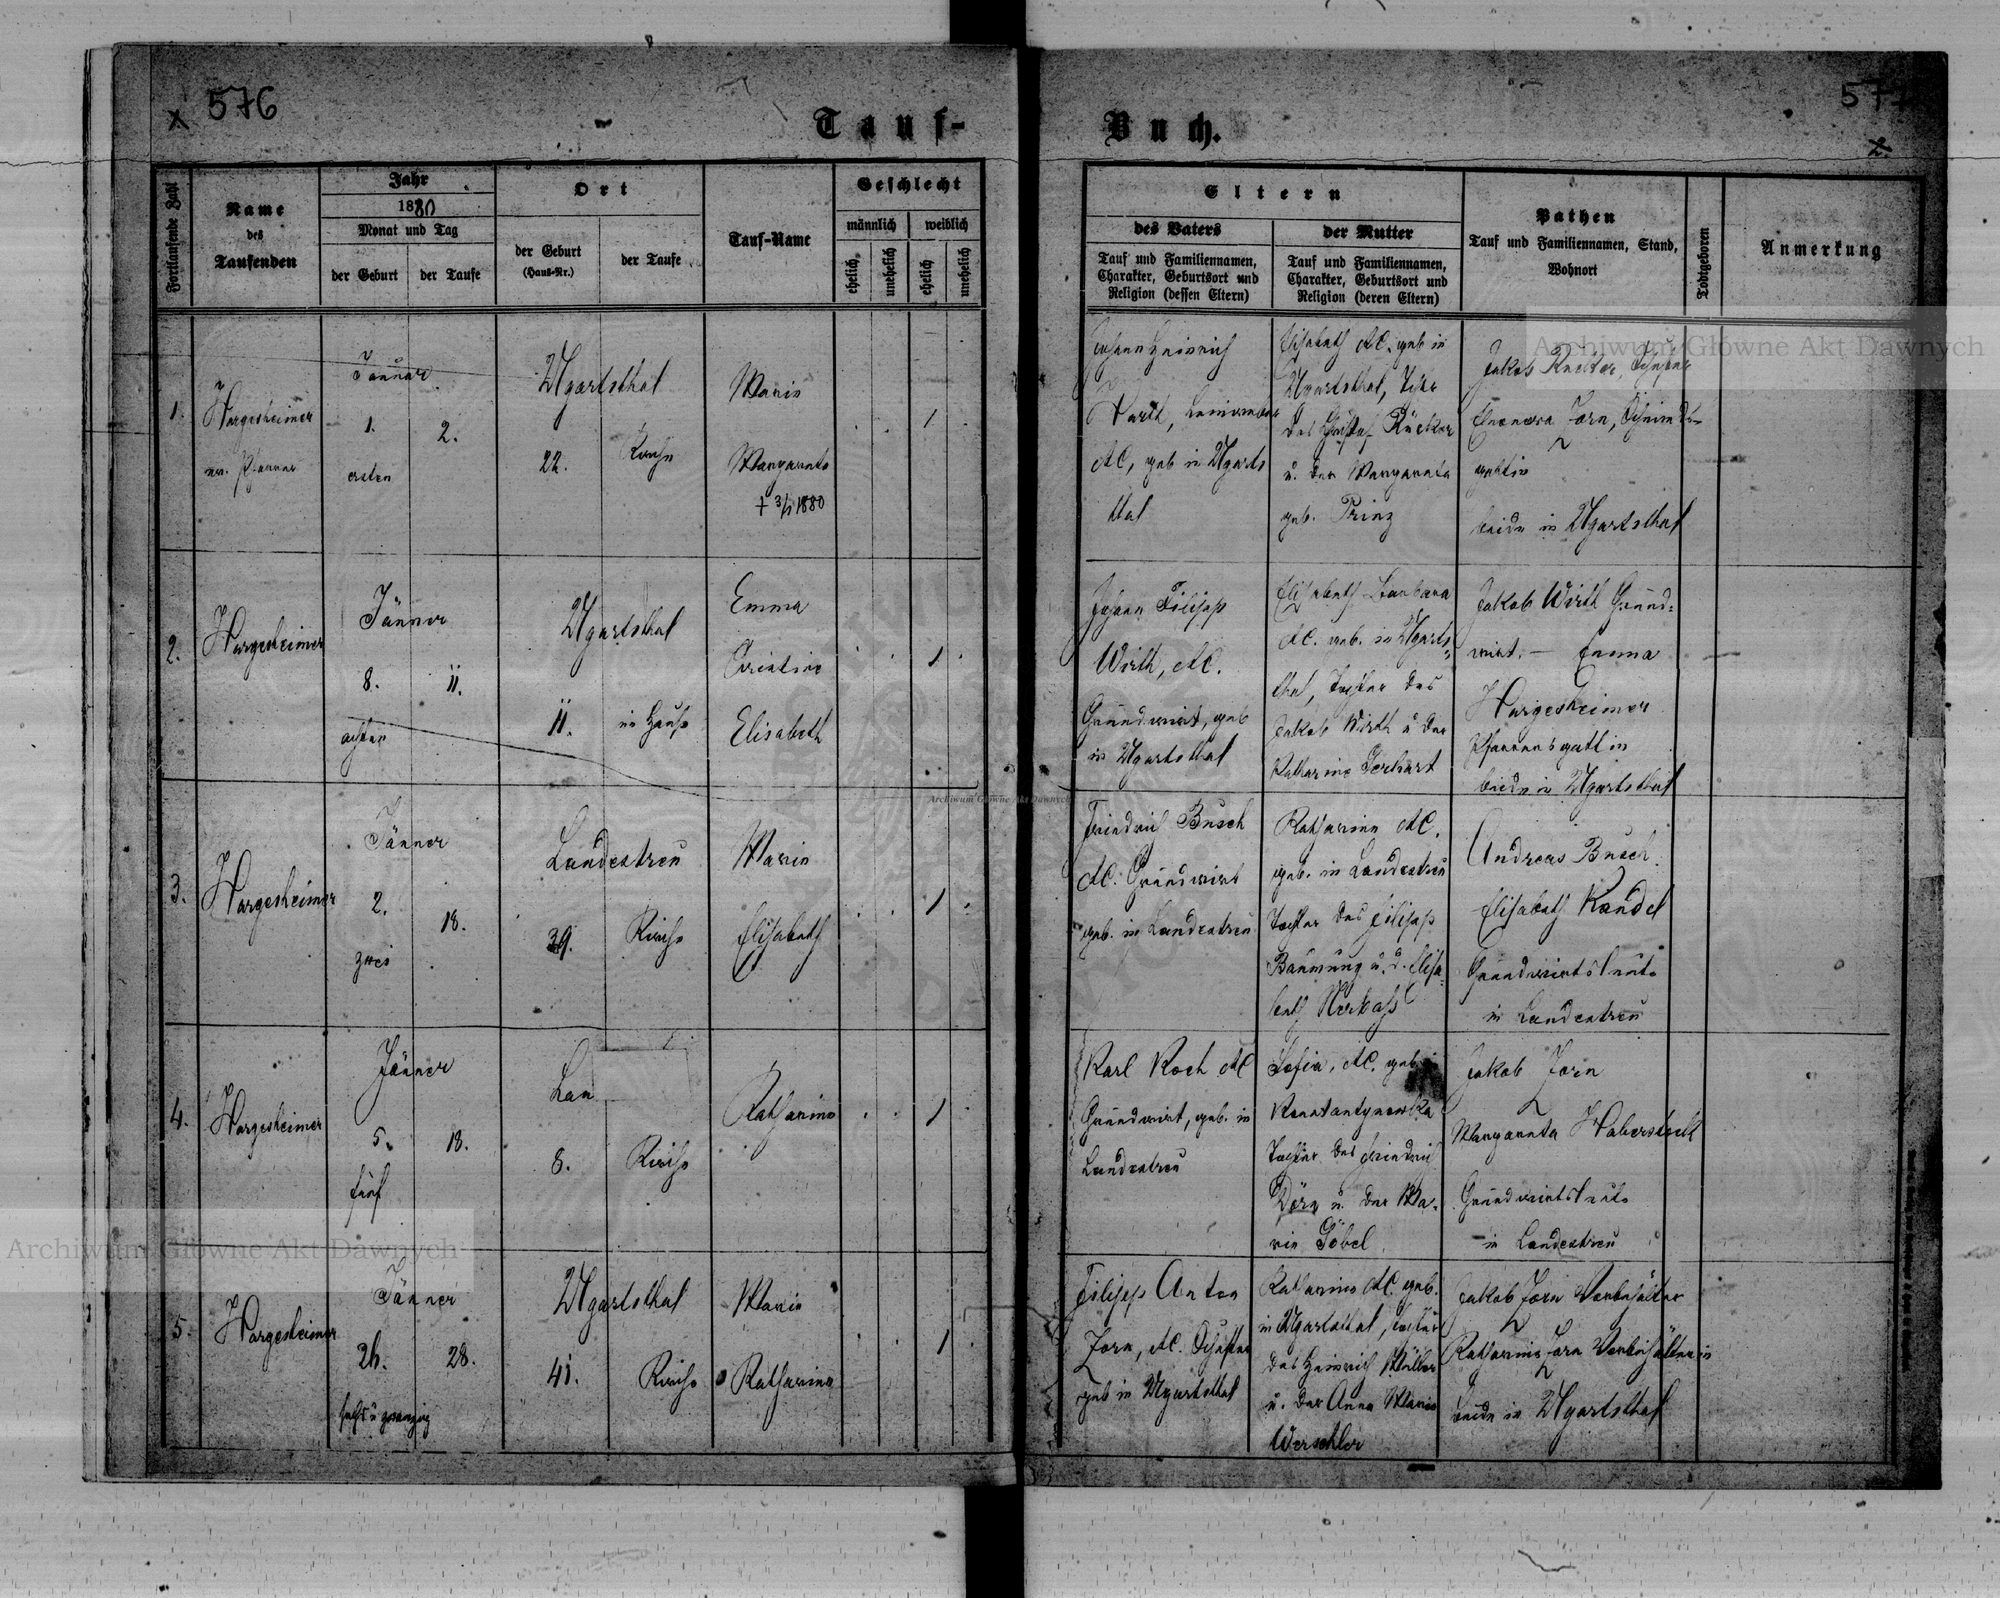 576
577
Tauf-
Buch.
2.
Fortlaufende Zahl
Name
des
Taufenden
Jahr
1880
Monat und Tag
der Geburt
der Taufe
Ort
der Geburt
(Haus-Nr.)
der Taufe
Tauf-Name
Geschlecht
männlich
weiblich
ehelich
unehelich
ehelich
unehelich
Eltern
des Vaters
Tauf und Familiennamen,
Charakter, Geburtsort und
Religion (dessen Eltern)
der Mutter
Tauf und Familiennamen,
Charakter, Geburtsort und
Religion (deren Eltern)
Pathen
Tauf und Familiennamen, Stand,
Wohnort
Todtgeboren
Anmerkung
1.
Hargesheimer
ev. Pfarrer
Jänner
1.
2.
ersten
Ugartsthal
22.
Kirche
Maria
Margareta
+ 3/1 1880
1
Johann Heinrich
AC, geb in Ugarts
thal
Elisabeth AC. geb in
Ugartsthal, Tochter
des Rücker
u. der Margareta
geb. Prinz
Jakob
Zorn,
gattin
beide in Ugartsthal
2.
Hargesheimer
Jänner
8.
11.
achten
Ugartsthal
11.
im Hause
Emma
Cristine
Elisabeth
1
Johann Filipp
Wirth, AC.
Grundwirt, geb
in Ugartsthal
Elisabeth Barbara
AC. geb. in Ugarts-
thal, Tochter des
Jakob Wirth u der
Katharine
Jakob Wirth Grund-
wirt. — Emma
Hargesheimer
Pfarrersgattin
beide in Ugartsthal
3.
Hargesheimer
Jänner
2.
18.
zwei
Landestreu
39.
Kirche
Maria
Elisabeth
1
Friedrich Busch
AC. Grundwirt
geb. in Landestreu
Katharina AC.
geb. in Landestreu
Tochter des Filipp
Baumung u. d. Elisa-
beth
Andreas Busch
Elisabeth Kandel
Grundwirtsleute
in Landestreu
4.
Hargesheimer
Jänner
5.
18.
fünf
Lan
8.
Kirche
Katharina
1
Karl Koch AC
Grundwirt, geb. in
Landestreu
Sofia, AC. geb. in
Konstantynowka
Tochter des Friedrich
Dörn u. der Ma-
rie Göbel
Jakob Zorn
Margareta Haberstock
Grundwirtsleute
in Landestreu
5.
Hargesheimer
Jänner
26.
28.
sechs u zwanzig
Ugartsthal
41.
Kirche
Maria
Katharina
1
Filipp Anton
Zorn, AC.
geb in Ugartsthal
Katharina AC. geb.
in Ugartsthal, Tochter
des Heinrich Müller
u. der Anna Maria
Werschler
Jakob Zorn
Katharina Zorn
beide in Ugartsthal
Archiwum Główne Akt Dawnych
Archiwum Główne Akt Dawnych
Archiwum Główne Akt Dawnych